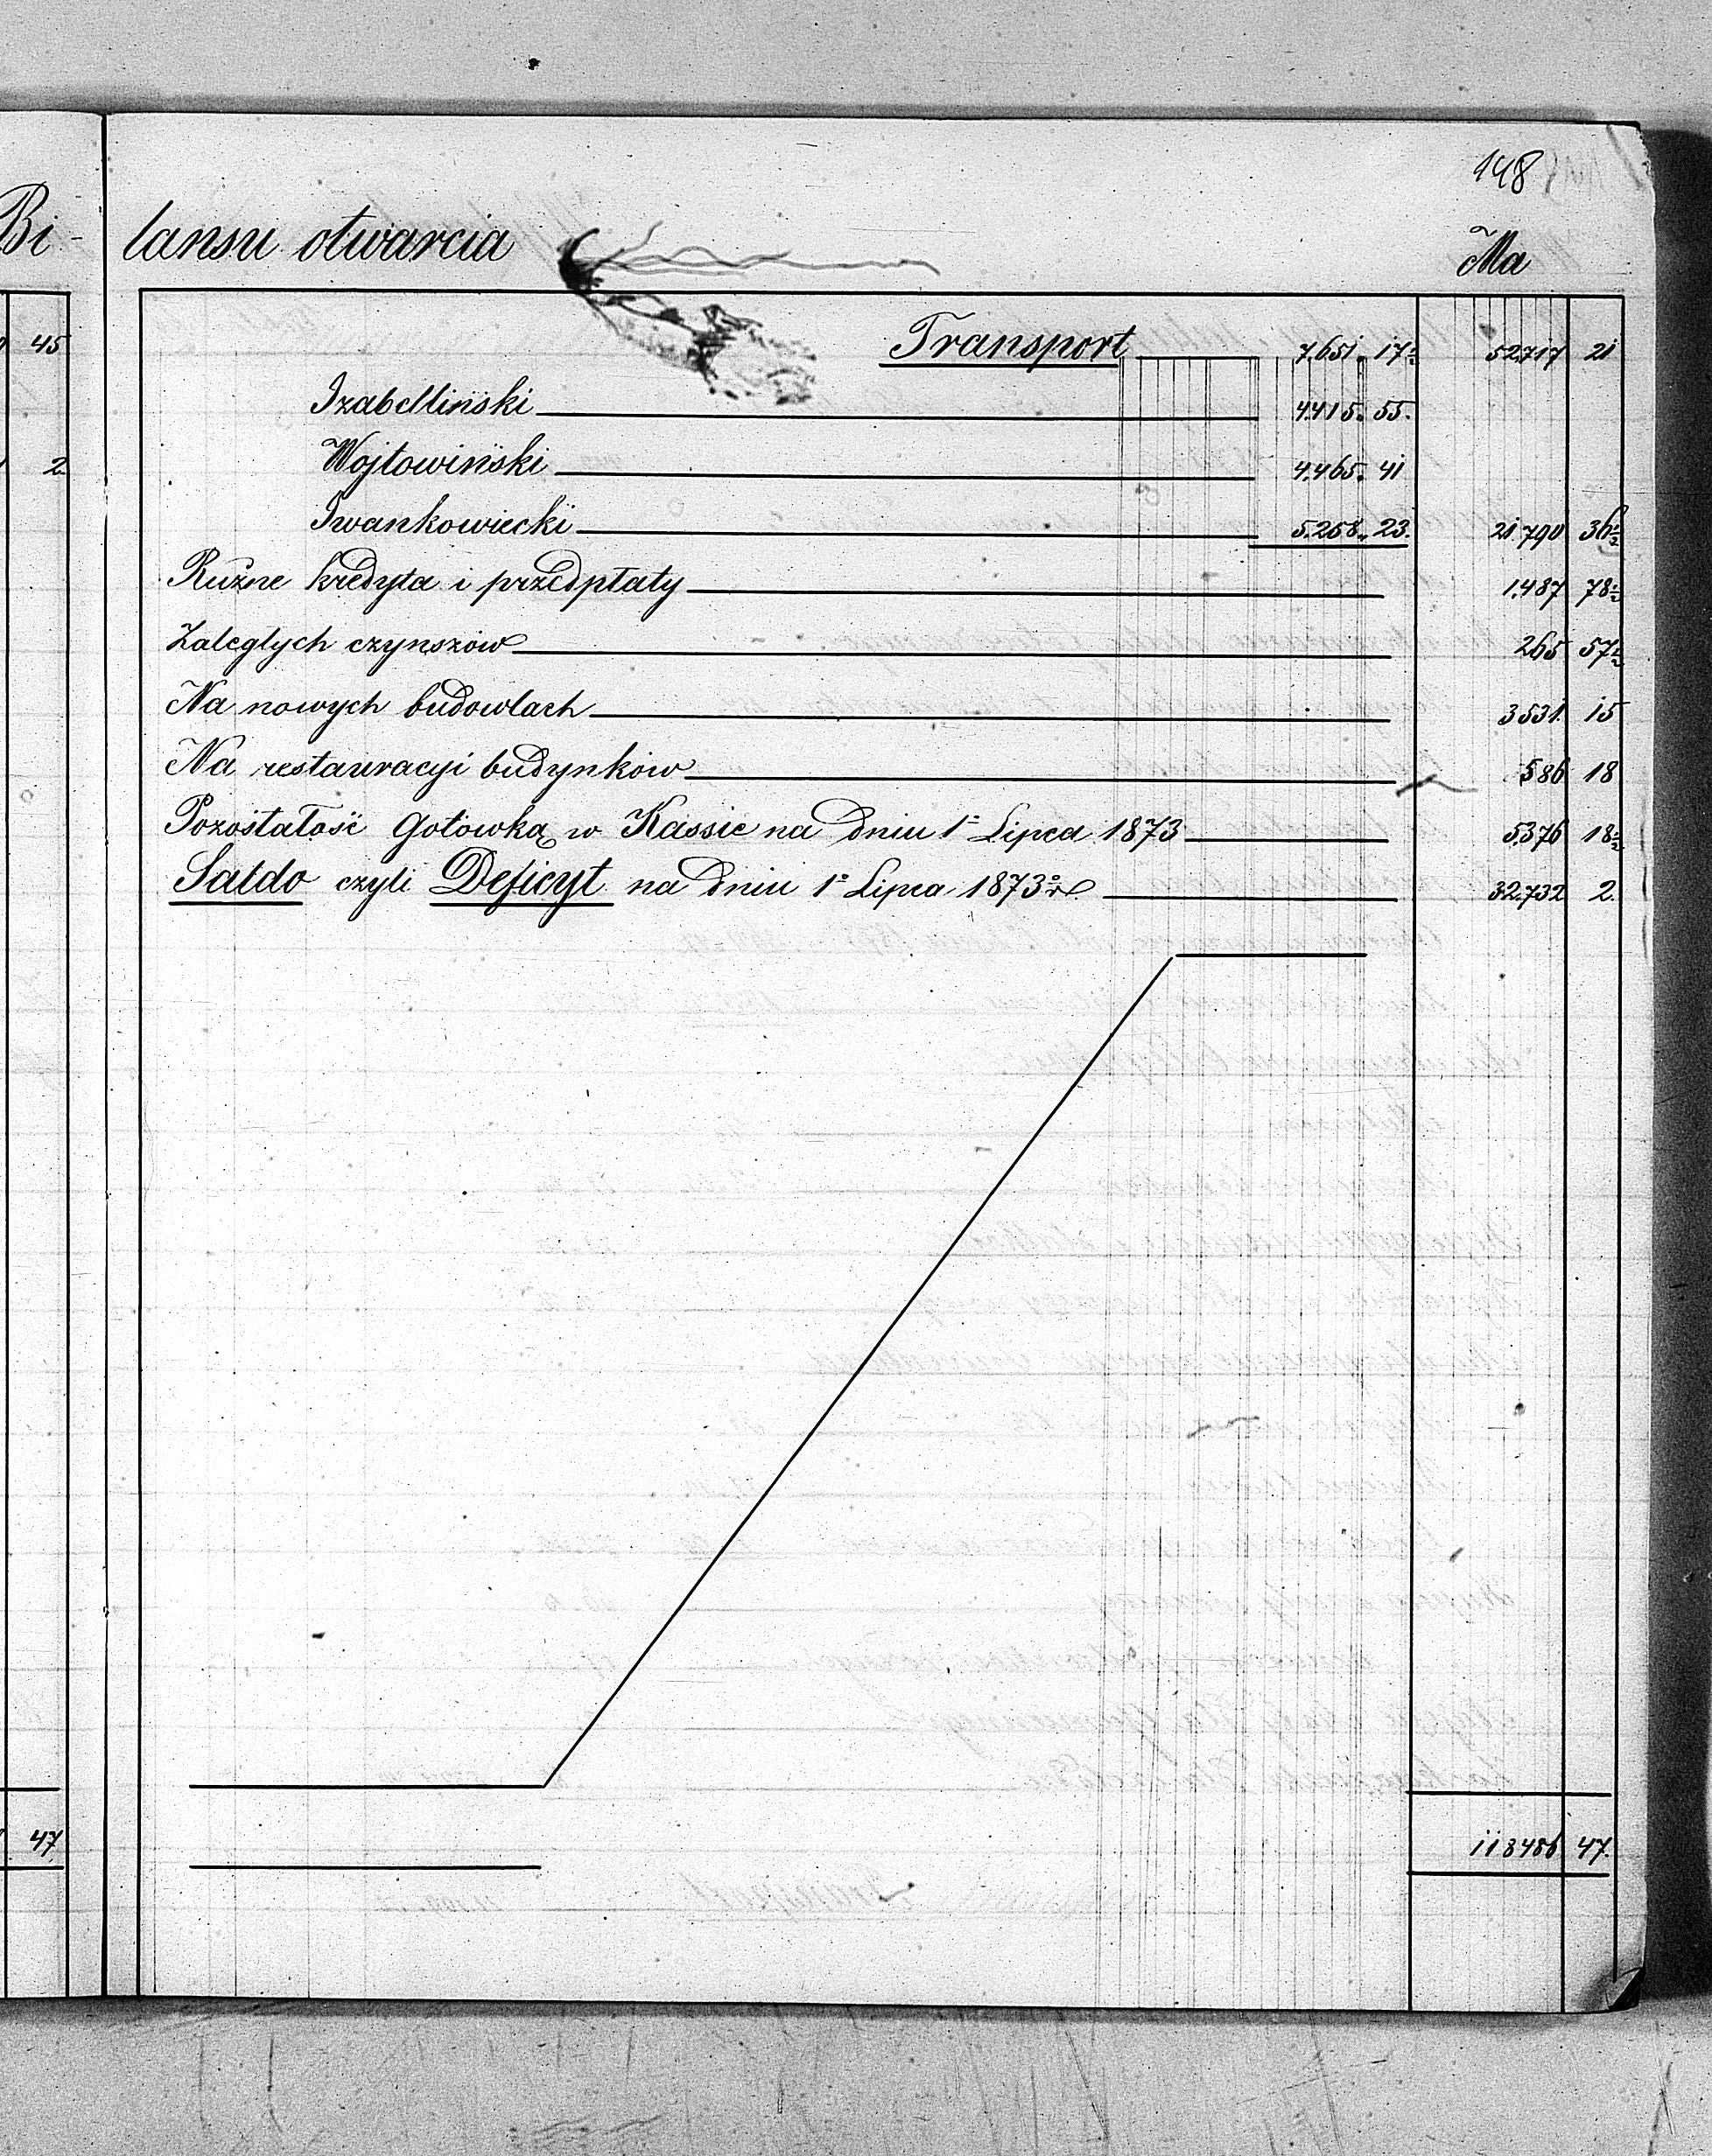 148
Bi-lansu otwarcia Ma
45 Transport 7,651. 17½ 52,717 21
Izabelliński 4,415. 55.
2 Wojtowiński 4,465. 41
Iwankowiecki 5,258. 23. 21,790 36½
Rużne kredyta i przedpłaty 1,487 78½
Zaległych czynszów 265 57½
Na nowych budowlach 3531. 15
Na restauracyi budynków 586 18
Pozostałość Gotówką w Kassie na dniu 1º Lipca 1873 5,376 18½
Saldo czyli Deficyt na dniu 1º Lipca 1873 r 32,732 2.
47 118486 47.